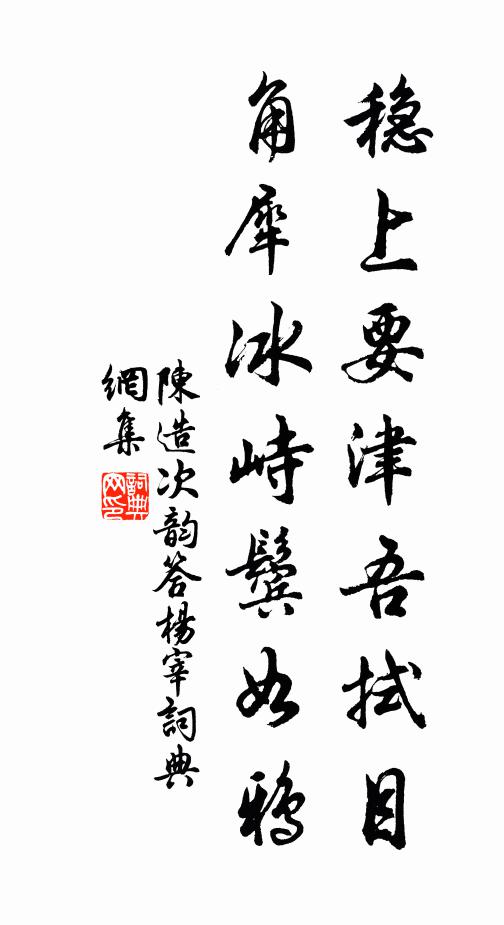 穏上要津吾拭目
角犀冰峙鬓如鴉
陳造次韵答楊宰詞典
網集
詞典
网印